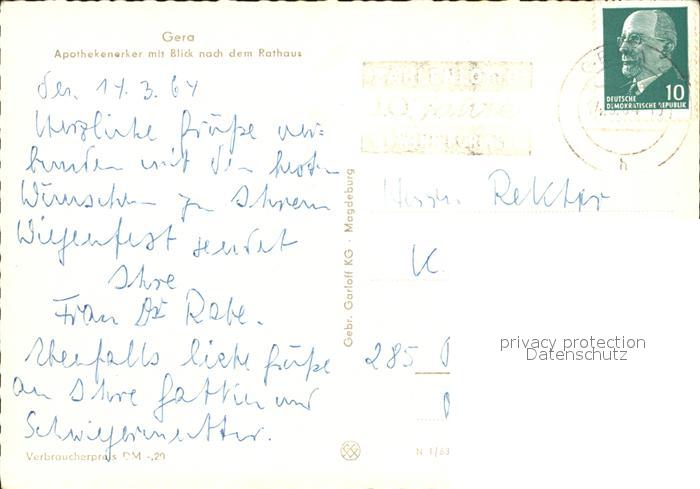 Gera
Apothekenerker mit Blick nach dem Rathaus
14.3.64
Herzliche Grüße ver=
bunden mit den besten
Wünschen zu Ihrem
Wiegenfest sendet
Ihre
Frau Dr. Rabe.
Ebenfalls liebe Grüße
an Ihre Gattin und
Schwiegermutter.
Verbraucherpreis DM -,20
Gebr. Garloff KG · Magdeburg
N 1/63
10
DEUTSCHE
DEMOKRATISCHE REPUBLIK
h
Herrn Rektor
K.
285
privacy protection
Datenschutz